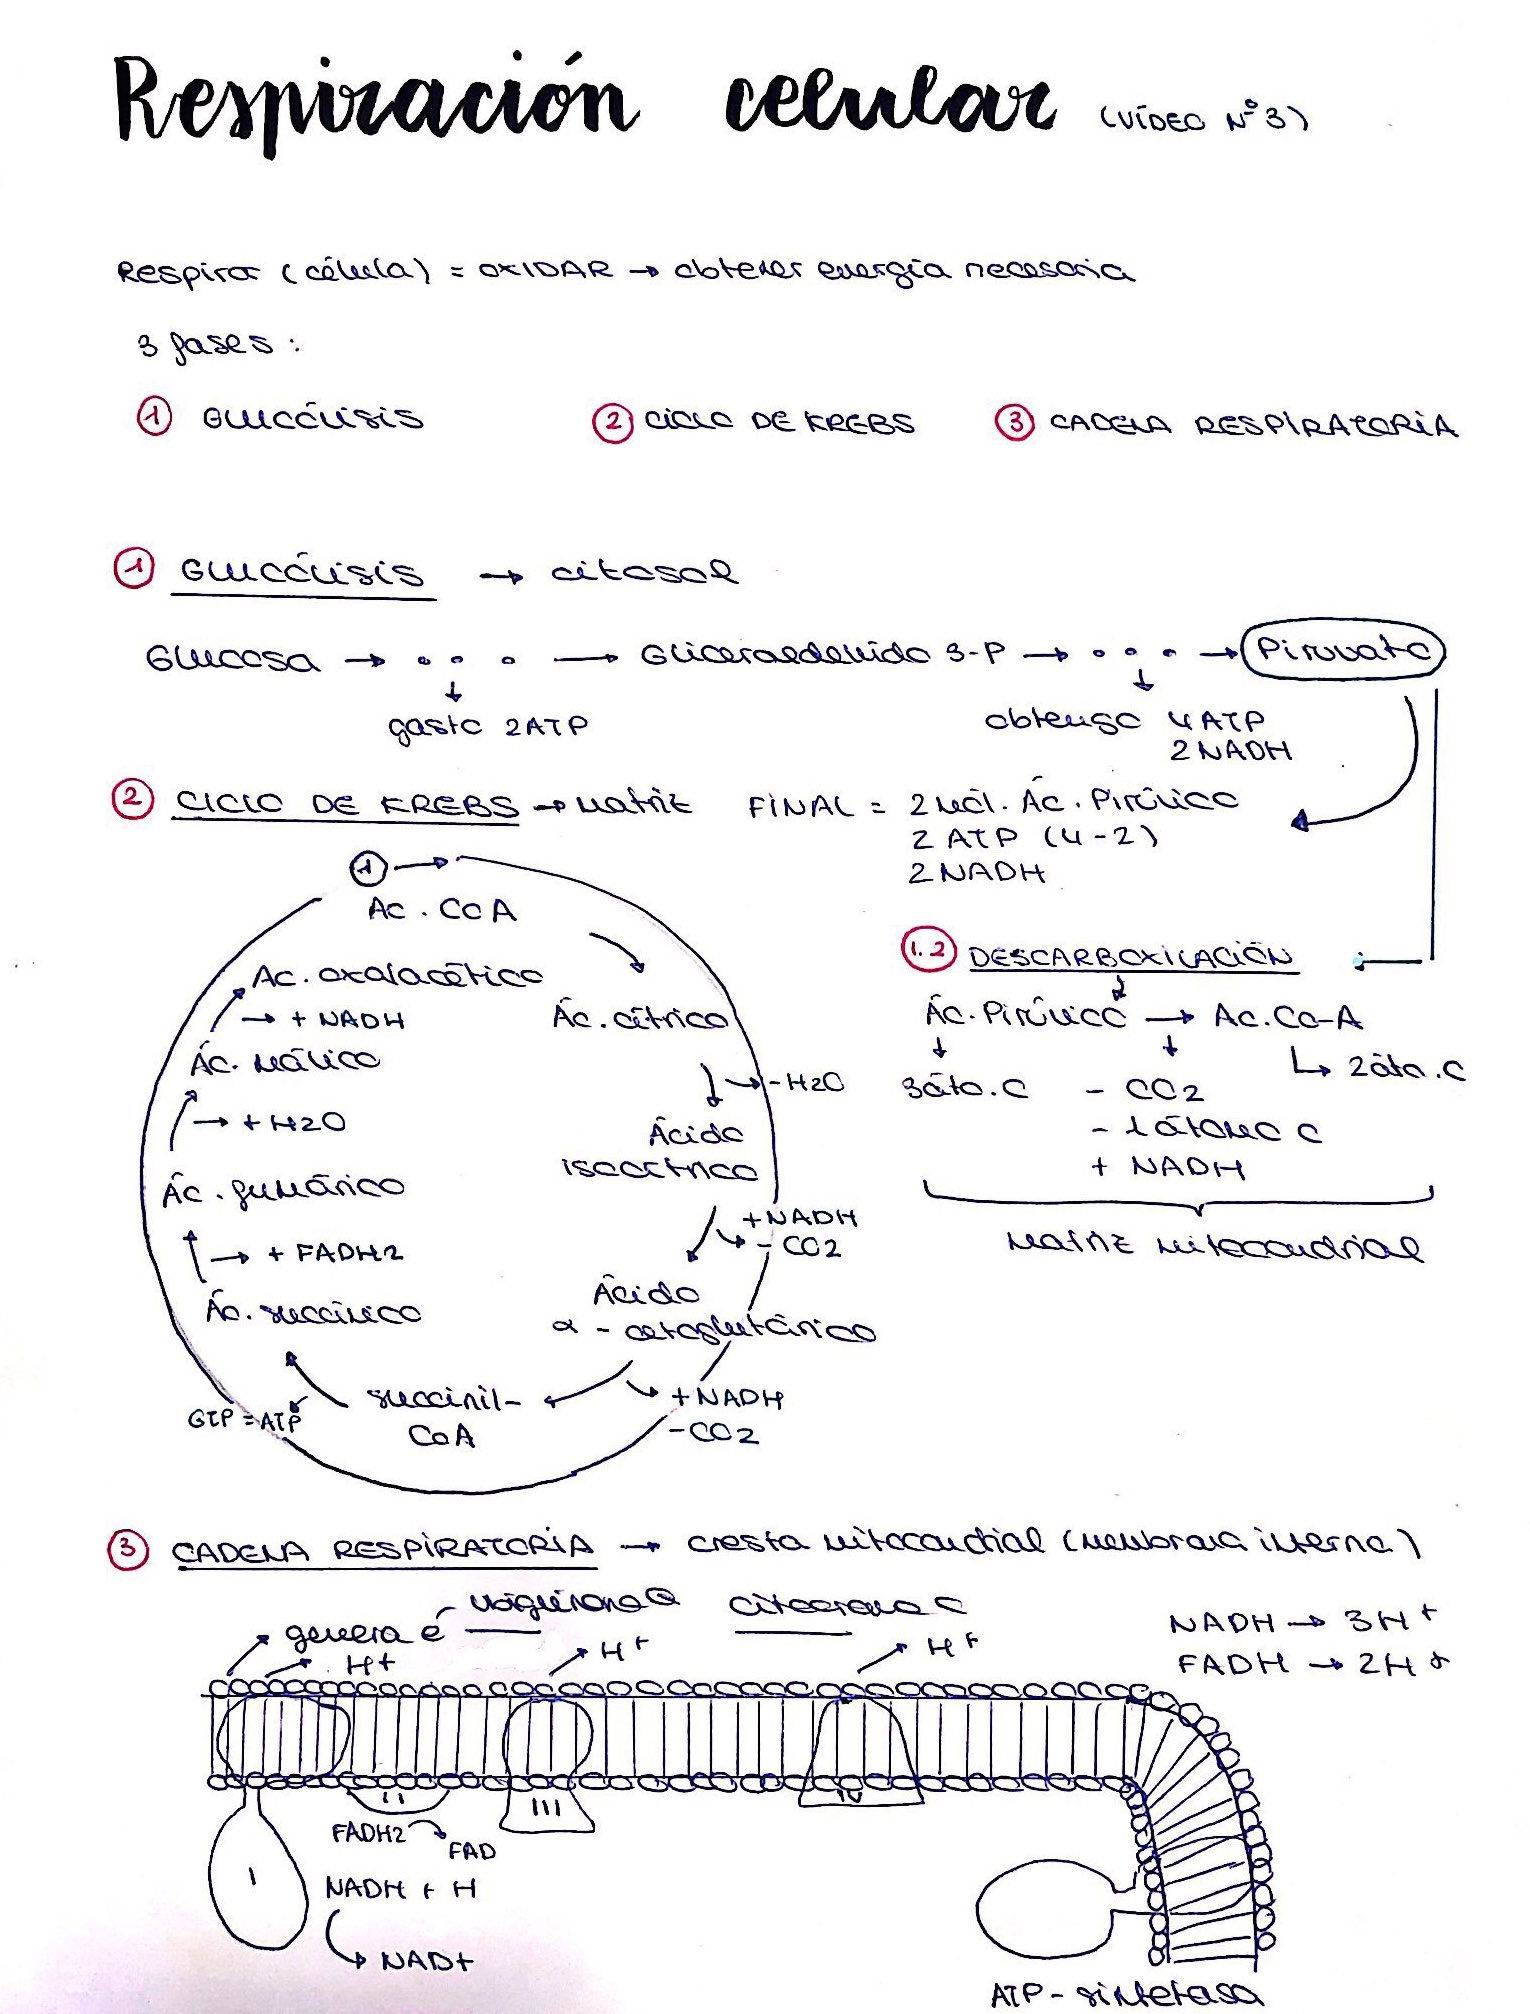 Respiración celular (VÍDEO Nº3)
Respirar (célula) = OXIDAR → obtener energía necesaria
3 fases :
① GLUCÓLISIS ② CICLO DE KREBS ③ CADENA RESPIRATORIA
① GLUCÓLISIS → citosol
Glucosa → ... → Gliceraldehído 3-P → ... → Piruvato
↓ gasto 2ATP
↓ obtengo 4ATP
2NADH
② CICLO DE KREBS → Matriz
FINAL = 2 Mól. Ác. Pirúvico
2 ATP (4-2)
2 NADH
① →
Ac. CoA
Ác. cítrico
→ - H2O
Ácido
isocítrico
+NADH
- CO2
Ácido
α - cetoglutárico
+NADH
-CO2
succinil-
CoA
GTP = ATP
Ác. succínico
→ + FADH2
Ác. fumárico
→ + H2O
Ác. málico
→ + NADH
Ac. oxalacético
1.2 DESCARBOXILACIÓN
Ác. Pirúvico → Ac. Co-A
3 áto. C
- CO2
- 1 átomo C
+ NADH
↳ 2 áto. C
Matriz mitocondrial
③ CADENA RESPIRATORIA → cresta mitocondrial (membrana interna)
genera é
Ubiquinona Q
citocromo C
H+
H+
H+
NADH → 3H+
FADH → 2H+
I
II
III
IV
FADH2
FAD
NADH + H
NAD+
ATP-sintetasa